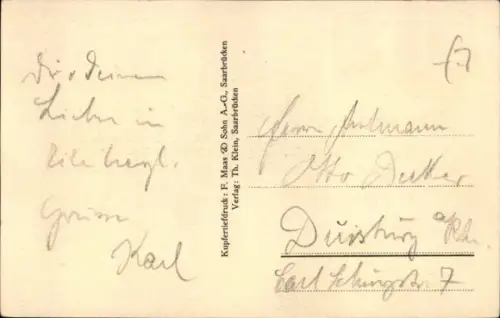 Dir & Deinen
Lieben in
Eile herzl.
Grüsse
Karl
Kupfertiefdruck: F. Maas & Sohn A.-G., Saarbrücken
Verlag: Th. Klein, Saarbrücken
Herrn
Otto
Duisburg a/Rh.
Carl Schurzstr. 7